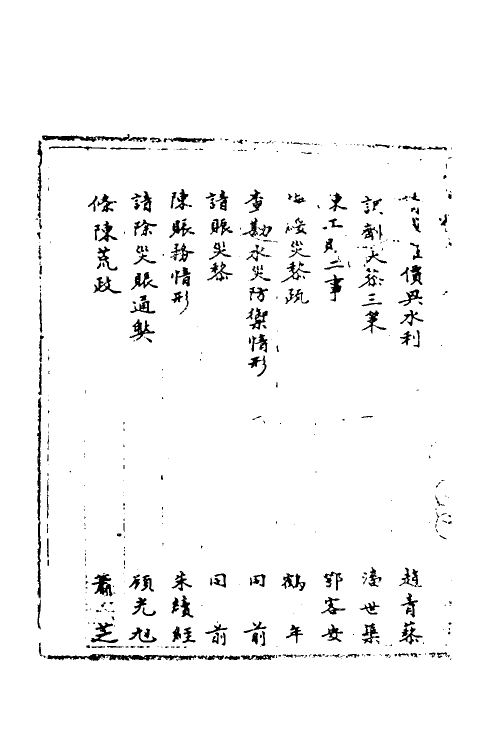 價興水利 趙青藜
災黎三策 世渠
陳工員二事 鄂容安
綏災黎疏 鶴年
查勘水災防禦情形 同前
請賑災黎 同前
陳賑務情形 朱續經
請除災賑通弊 顧光旭
條陳荒政 蕭芝